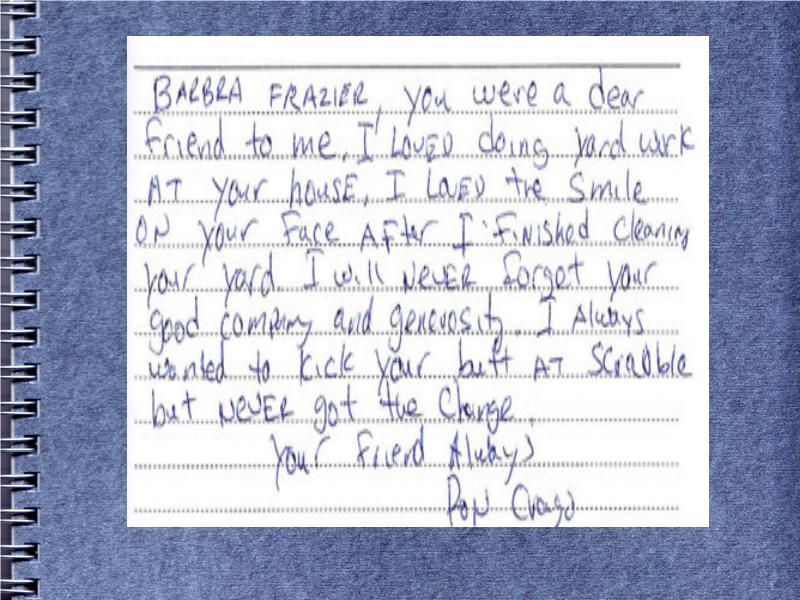 BARBRA FRAZIER, you were a dear
friend to me. I LOVED doing yard work
AT your house. I LOVED the Smile
ON your Face AFter I FiNished Cleaning
your yard. I will NEVER forget your
good company and generosity. I Always
wanted to kick your butt AT Scrabble
but NEVER got the Change.
your Friend Always